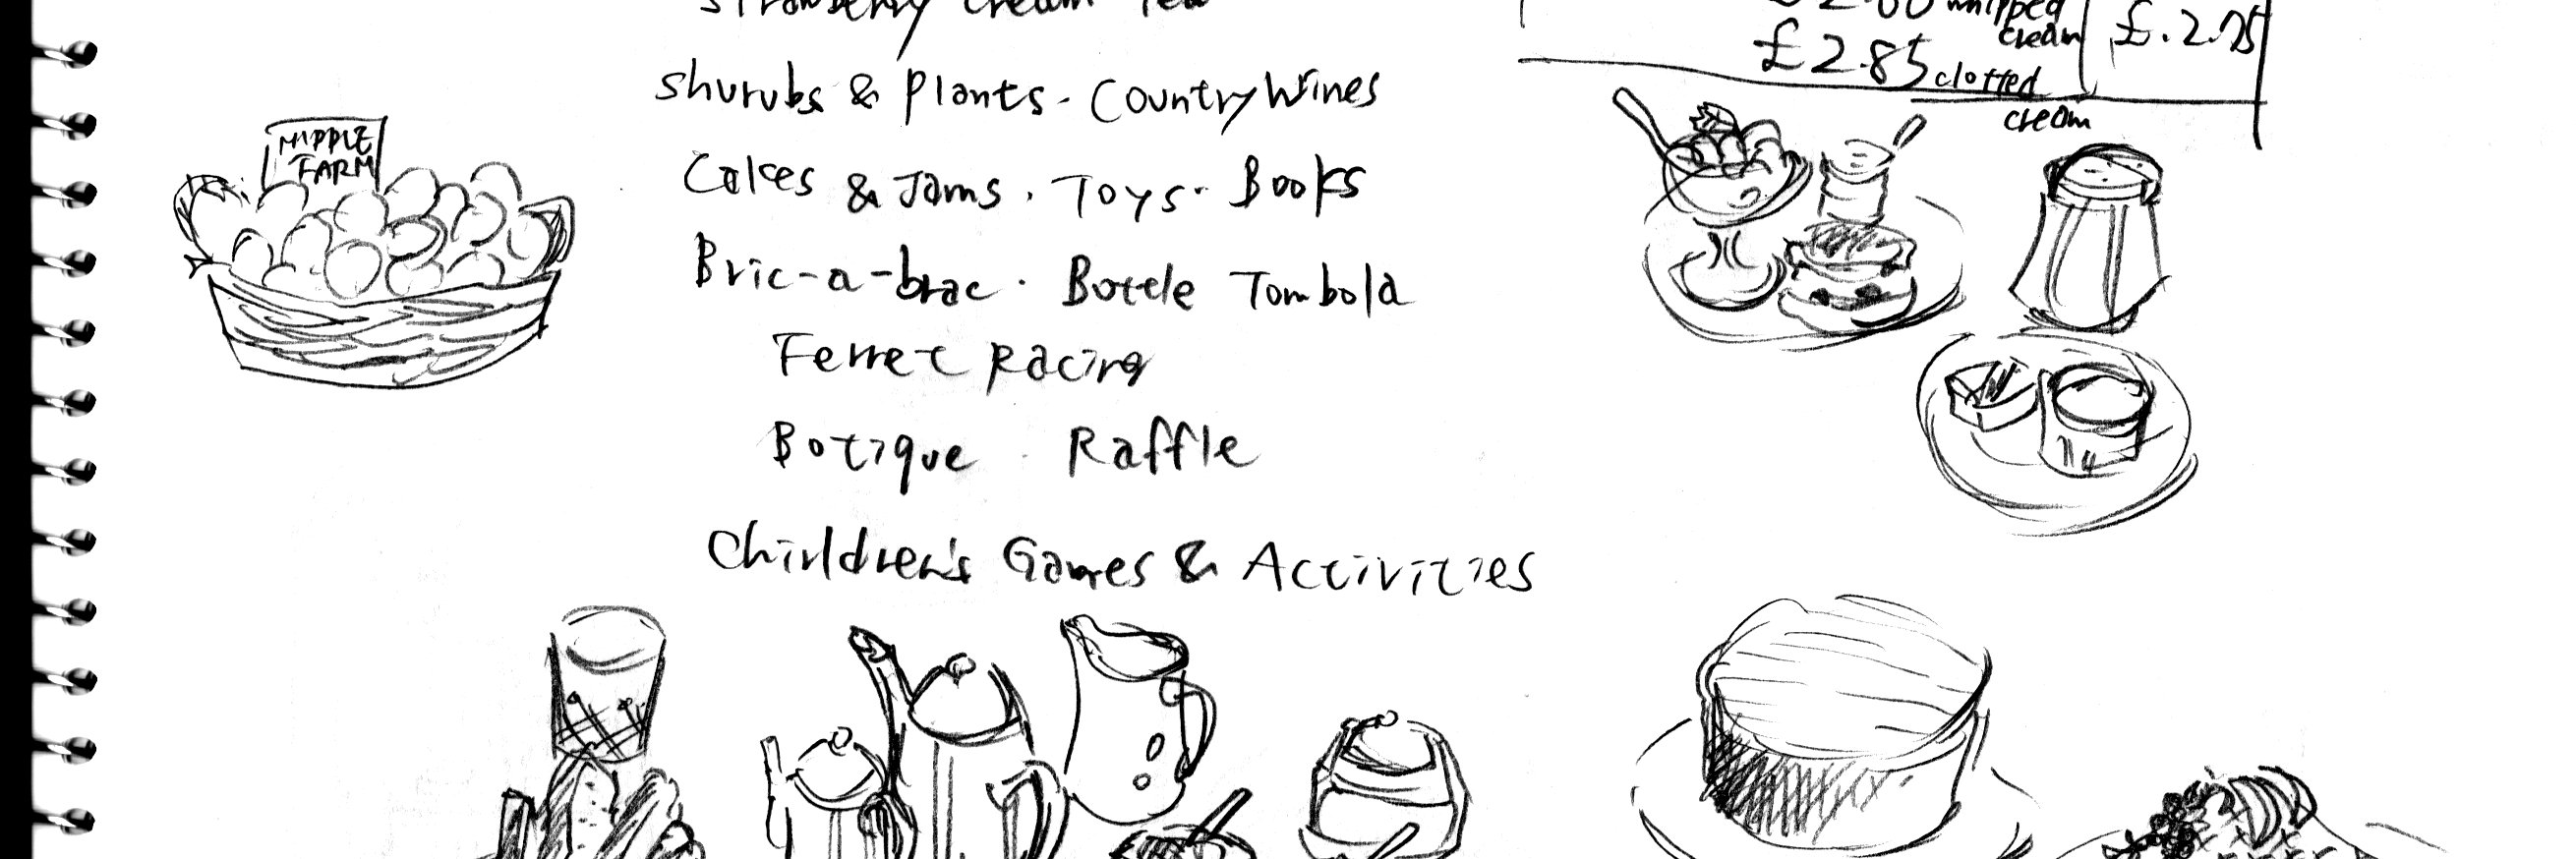 Strawberry Cream Tea
Shurubs & Plants - Country Wines
Cakes & Jams . Toys . Books
Bric-a-brac . Bottle Tombola
Ferret Racing
Botique . Raffle
Chirldren's Games & Activities
HIPPLE
FARM
£2.00 whipped
cream
£2.85 clotted
cream
£.2.75